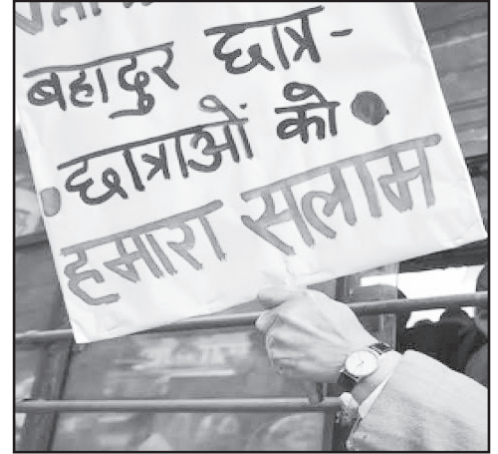 बहादुर छात्र-
छात्राओं को
हमारा सलाम